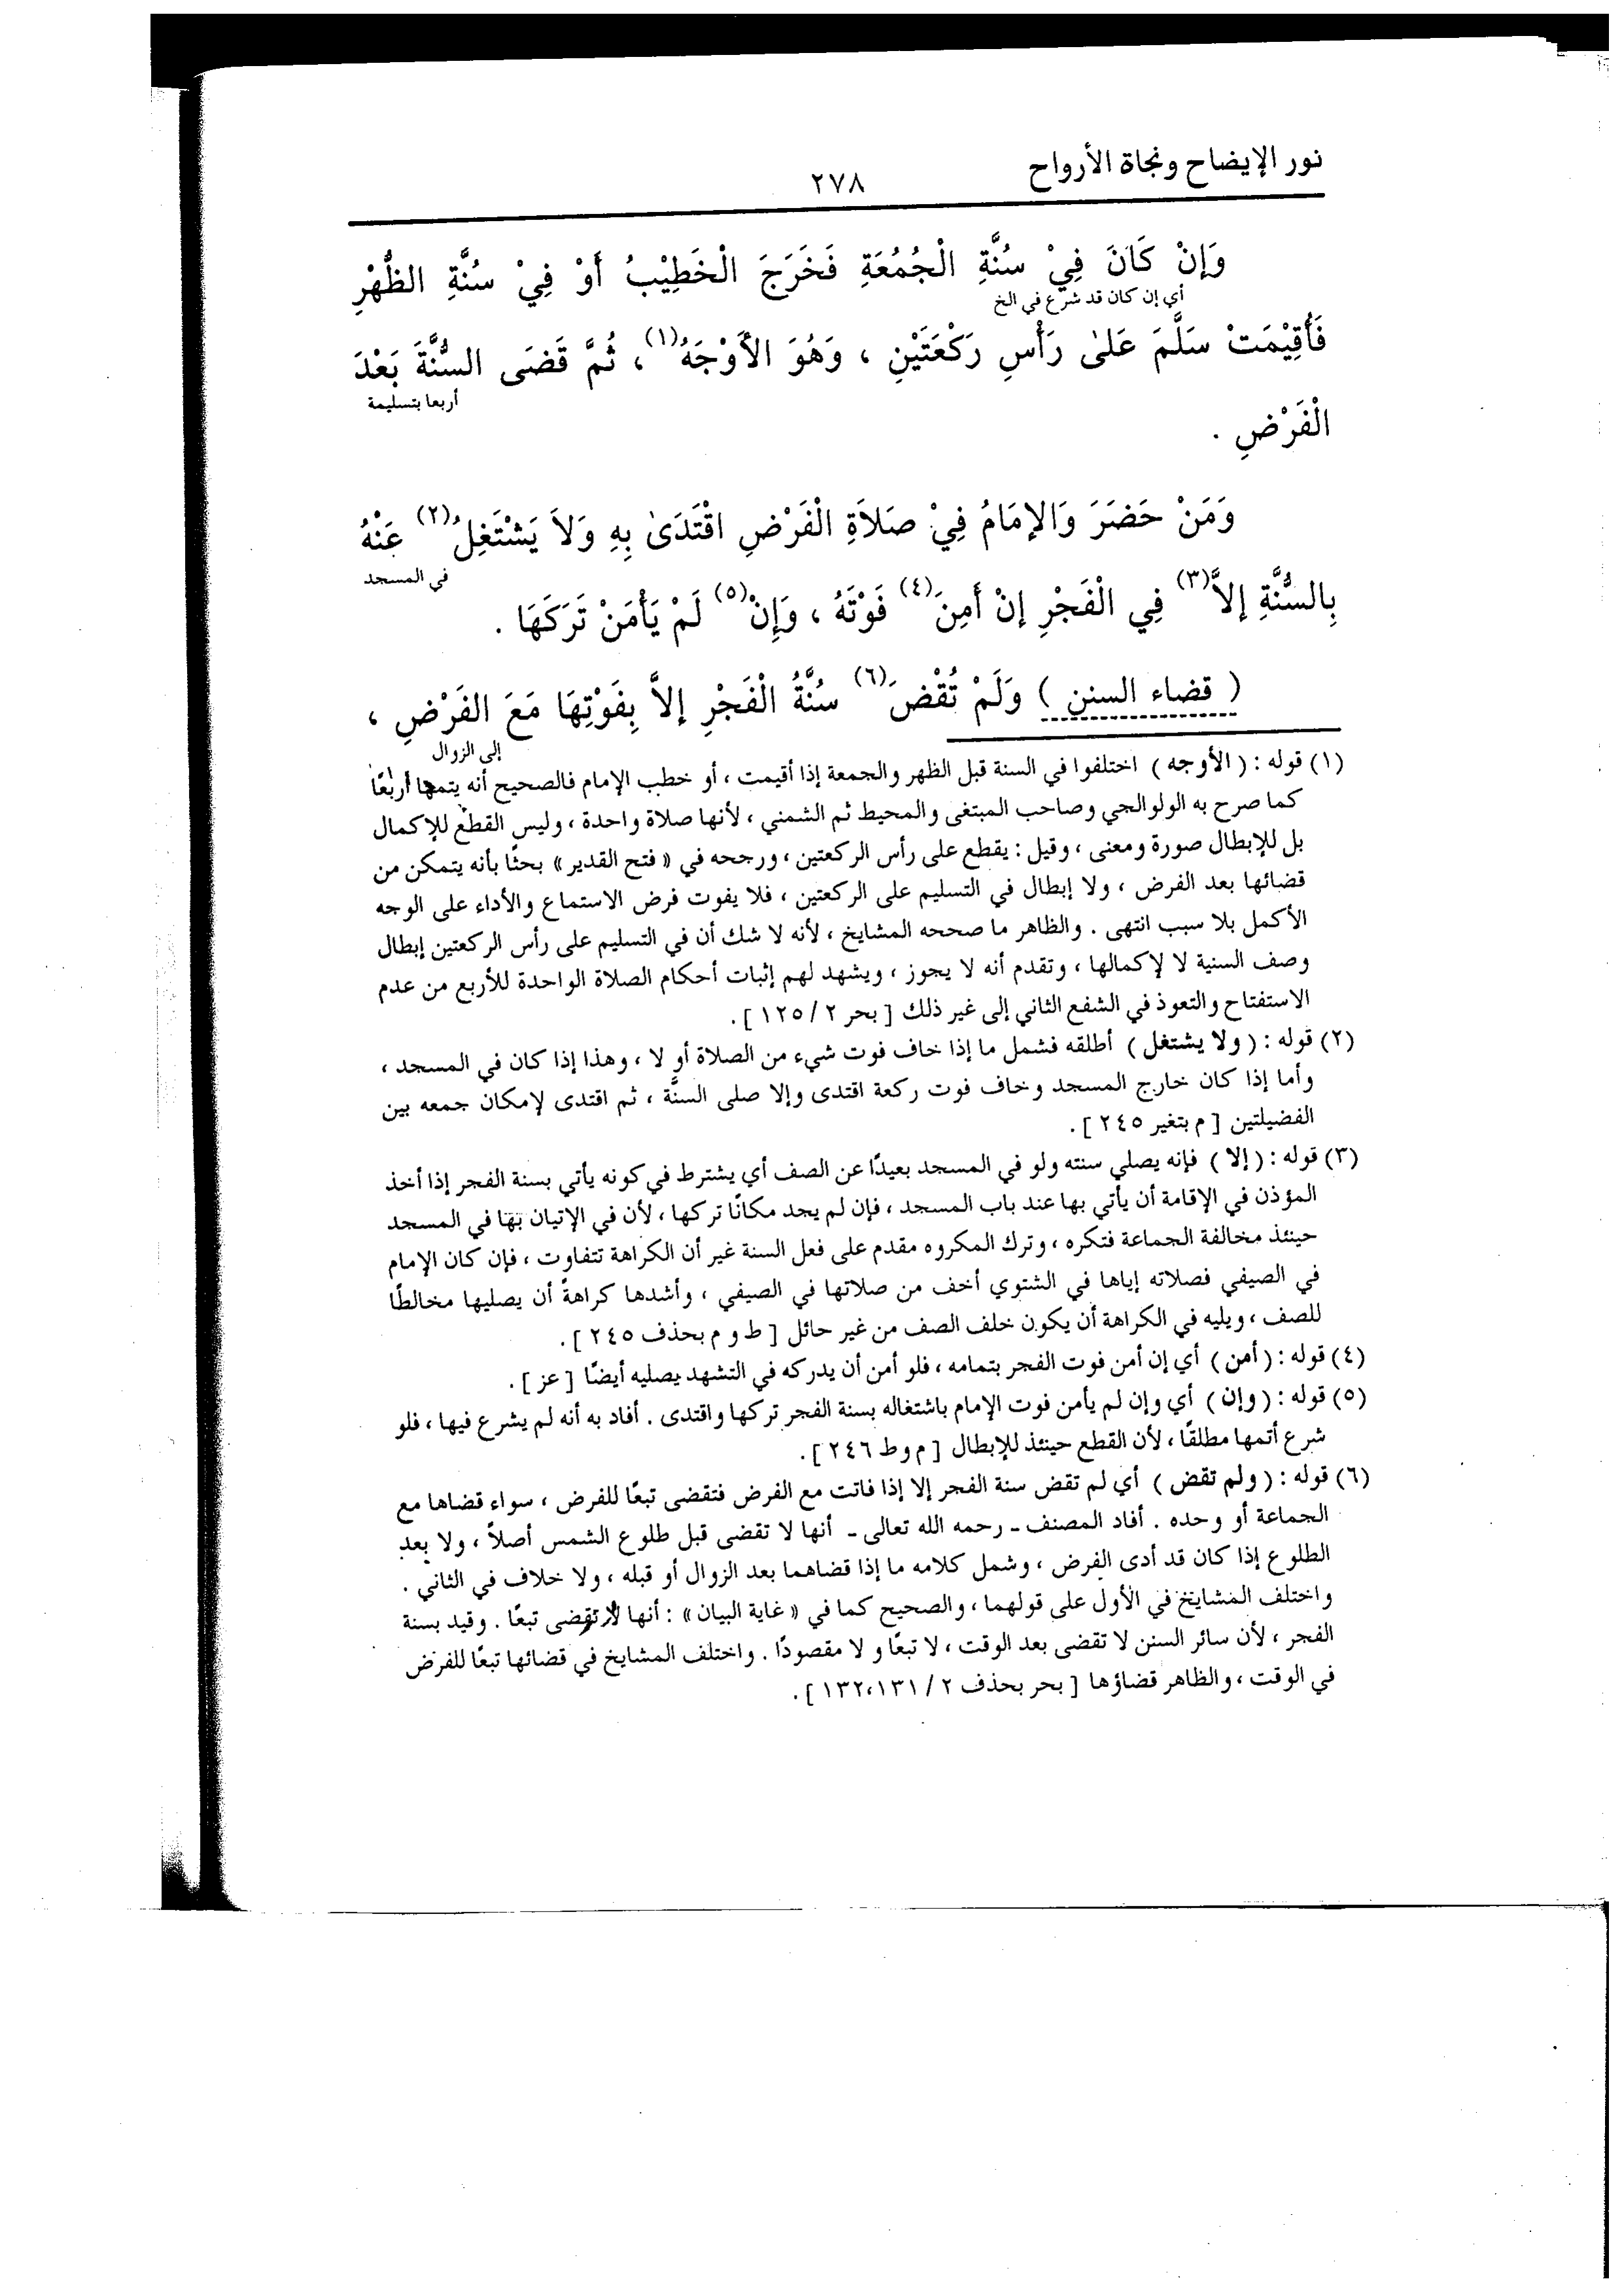 نور الإيضاح ونجاة الأرواح
٢٧٨
وَإِنْ كَانَ فِيْ سُنَّةِ الْجُمُعَةِ فَخَرَجَ الْخَطِيْبُ أَوْ فِيْ سُنَّةِ الظُّهْرِ
أي إن كان قد شرع في الخ
فَأُقِيْمَتْ سَلَّمَ عَلىٰ رَأْسِ رَكْعَتَيْنِ ، وَهُوَ الأَوْجَهُ(١) ، ثُمَّ قَضَى السُّنَّةَ بَعْدَ
أربعا بتسليمة
الْفَرْضِ .
وَمَنْ حَضَرَ وَالإمَامُ فِيْ صَلاَةِ الْفَرْضِ اقْتَدَىٰ بِهِ وَلاَ يَشْتَغِلُ(٢) عَنْهُ
في المسجد
بِالسُّنَّةِ إلاَّ(٣) فِي الْفَجْرِ إنْ أَمِنَ(٤) فَوْتَهُ ، وَإِنْ(٥) لَمْ يَأْمَنْ تَرَكَهَا .
( قضاء السنن ) وَلَمْ تُقْضَ(٦) سُنَّةُ الْفَجْرِ إلاَّ بِفَوْتِهَا مَعَ الفَرْضِ ،
إلى الزوال
(١) قوله : ( الأوجه ) اختلفوا في السنة قبل الظهر والجمعة إذا أقيمت ، أو خطب الإمام فالصحيح أنه يتمها أربعًا
كما صرح به الولوالجي وصاحب المبتغى والمحيط ثم الشمني ، لأنها صلاة واحدة ، وليس القطع للإكمال
بل للإبطال صورة ومعنى ، وقيل : يقطع على رأس الركعتين ، ورجحه في « فتح القدير » بحثًا بأنه يتمكن من
قضائها بعد الفرض ، ولا إبطال في التسليم على الركعتين ، فلا يفوت فرض الاستماع والأداء على الوجه
الأكمل بلا سبب انتهى . والظاهر ما صححه المشايخ ، لأنه لا شك أن في التسليم على رأس الركعتين إبطال
وصف السنية لا لإكمالها ، وتقدم أنه لا يجوز ، ويشهد لهم إثبات أحكام الصلاة الواحدة للأربع من عدم
الاستفتاح والتعوذ في الشفع الثاني إلى غير ذلك [ بحر ٢ / ١٢٥ ] .
(٢) قوله : ( ولا يشتغل ) أطلقه فشمل ما إذا خاف فوت شيء من الصلاة أو لا ، وهذا إذا كان في المسجد ،
وأما إذا كان خارج المسجد وخاف فوت ركعة اقتدى وإلا صلى السنَّة ، ثم اقتدى لإمكان جمعه بين
الفضيلتين [ م بتغير ٢٤٥ ] .
(٣) قوله : ( إلا ) فإنه يصلي سنته ولو في المسجد بعيدًا عن الصف أي يشترط في كونه يأتي بسنة الفجر إذا أخذ
المؤذن في الإقامة أن يأتي بها عند باب المسجد ، فإن لم يجد مكانًا تركها ، لأن في الإتيان بها في المسجد
حينئذ مخالفة الجماعة فتكره ، وترك المكروه مقدم على فعل السنة غير أن الكراهة تتفاوت ، فإن كان الإمام
في الصيفي فصلاته إياها في الشتوي أخف من صلاتها في الصيفي ، وأشدها كراهةً أن يصليها مخالطًا
للصف ، ويليه في الكراهة أن يكون خلف الصف من غير حائل [ ط و م بحذف ٢٤٥ ] .
(٤) قوله : ( أمن ) أي إن أمن فوت الفجر بتمامه ، فلو أمن أن يدركه في التشهد يصليه أيضًا [ عز ] .
(٥) قوله : ( وإن ) أي وإن لم يأمن فوت الإمام باشتغاله بسنة الفجر تركها واقتدى . أفاد به أنه لم يشرع فيها ، فلو
شرع أتمها مطلقًا ، لأن القطع حينئذ للإبطال [ م وط ٢٤٦ ] .
(٦) قوله : ( ولم تقض ) أي لم تقض سنة الفجر إلا إذا فاتت مع الفرض فتقضى تبعًا للفرض ، سواء قضاها مع
الجماعة أو وحده . أفاد المصنف ـ رحمه الله تعالى ـ أنها لا تقضى قبل طلوع الشمس أصلاً ، ولا بعد
الطلوع إذا كان قد أدى الفرض ، وشمل كلامه ما إذا قضاهما بعد الزوال أو قبله ، ولا خلاف في الثاني .
واختلف المشايخ في الأول على قولهما ، والصحيح كما في « غاية البيان » : أنها لا تقضى تبعًا . وقيد بسنة
الفجر ، لأن سائر السنن لا تقضى بعد الوقت ، لا تبعًا و لا مقصودًا . واختلف المشايخ في قضائها تبعًا للفرض
في الوقت ، والظاهر قضاؤها [ بحر بحذف ٢ / ١٣١،١٣٢ ] .